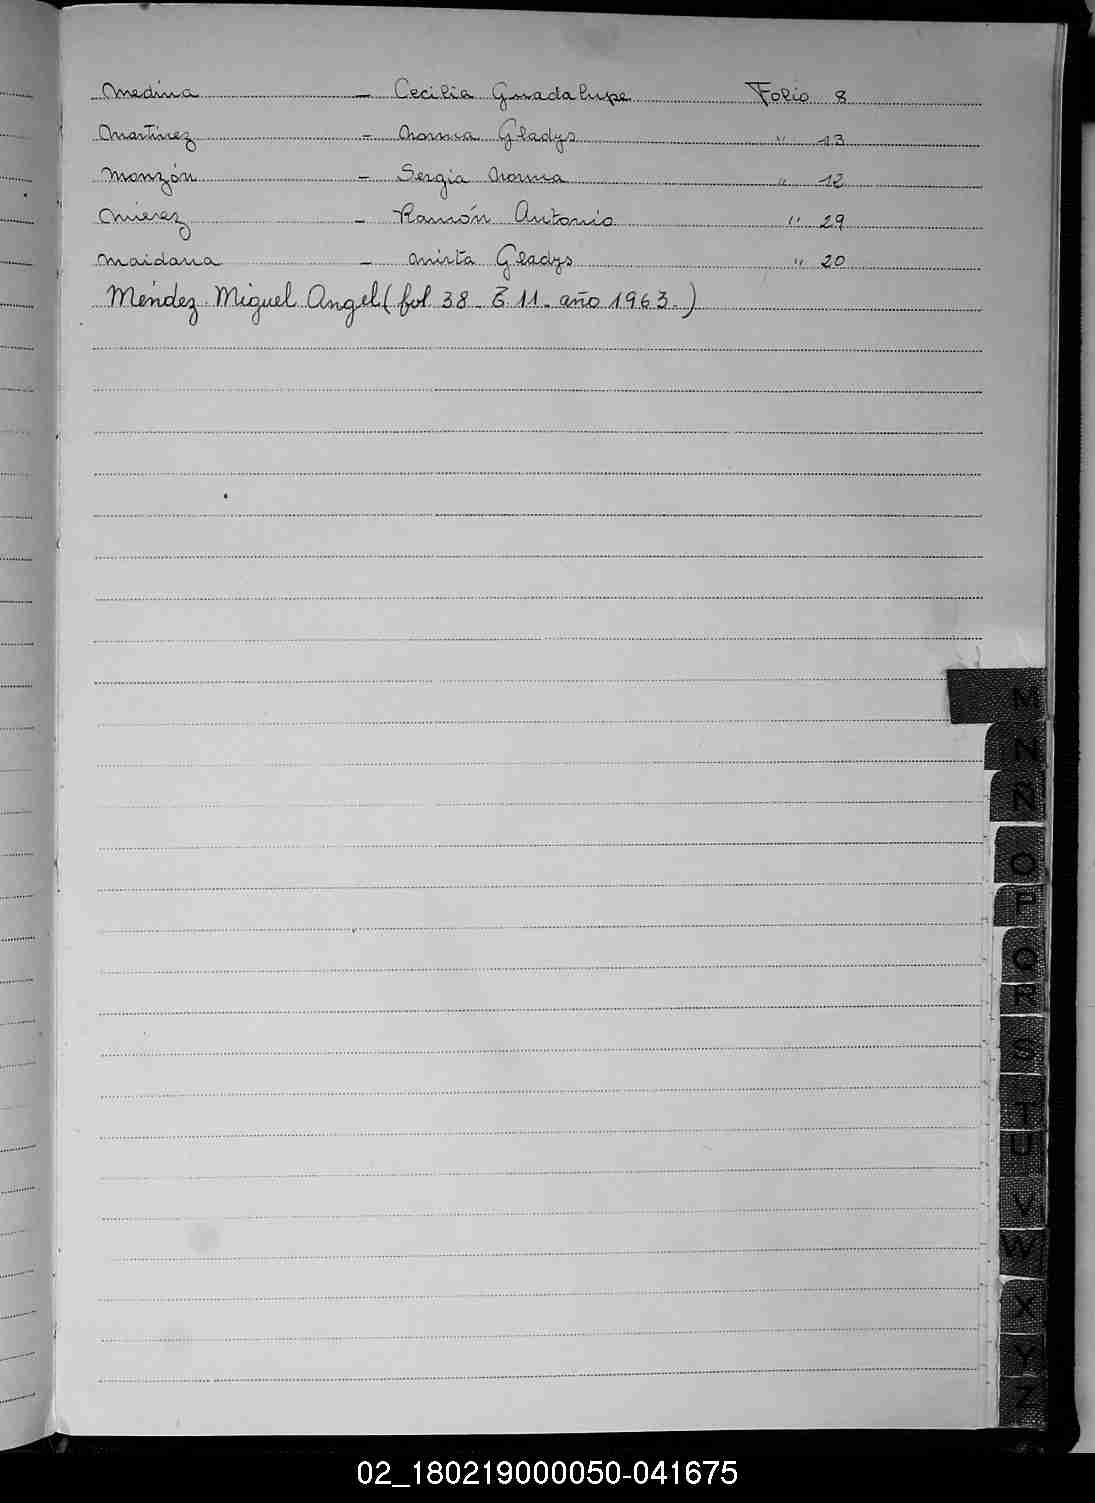 Medina - Cecilia Guadalupe Folio 8
Martínez - Norma Gladys " 13
Monzón - Sergia Norma " 12
Mierez - Ramón Antonio " 29
Maidana - Mirta Gladys " 20
Méndez Miguel Angel (fol 38 - T 11 - año 1963.)
M
N
Ñ
O
P
Q
R
S
T
U
V
W
X
Y
Z
02_180219000050-041675